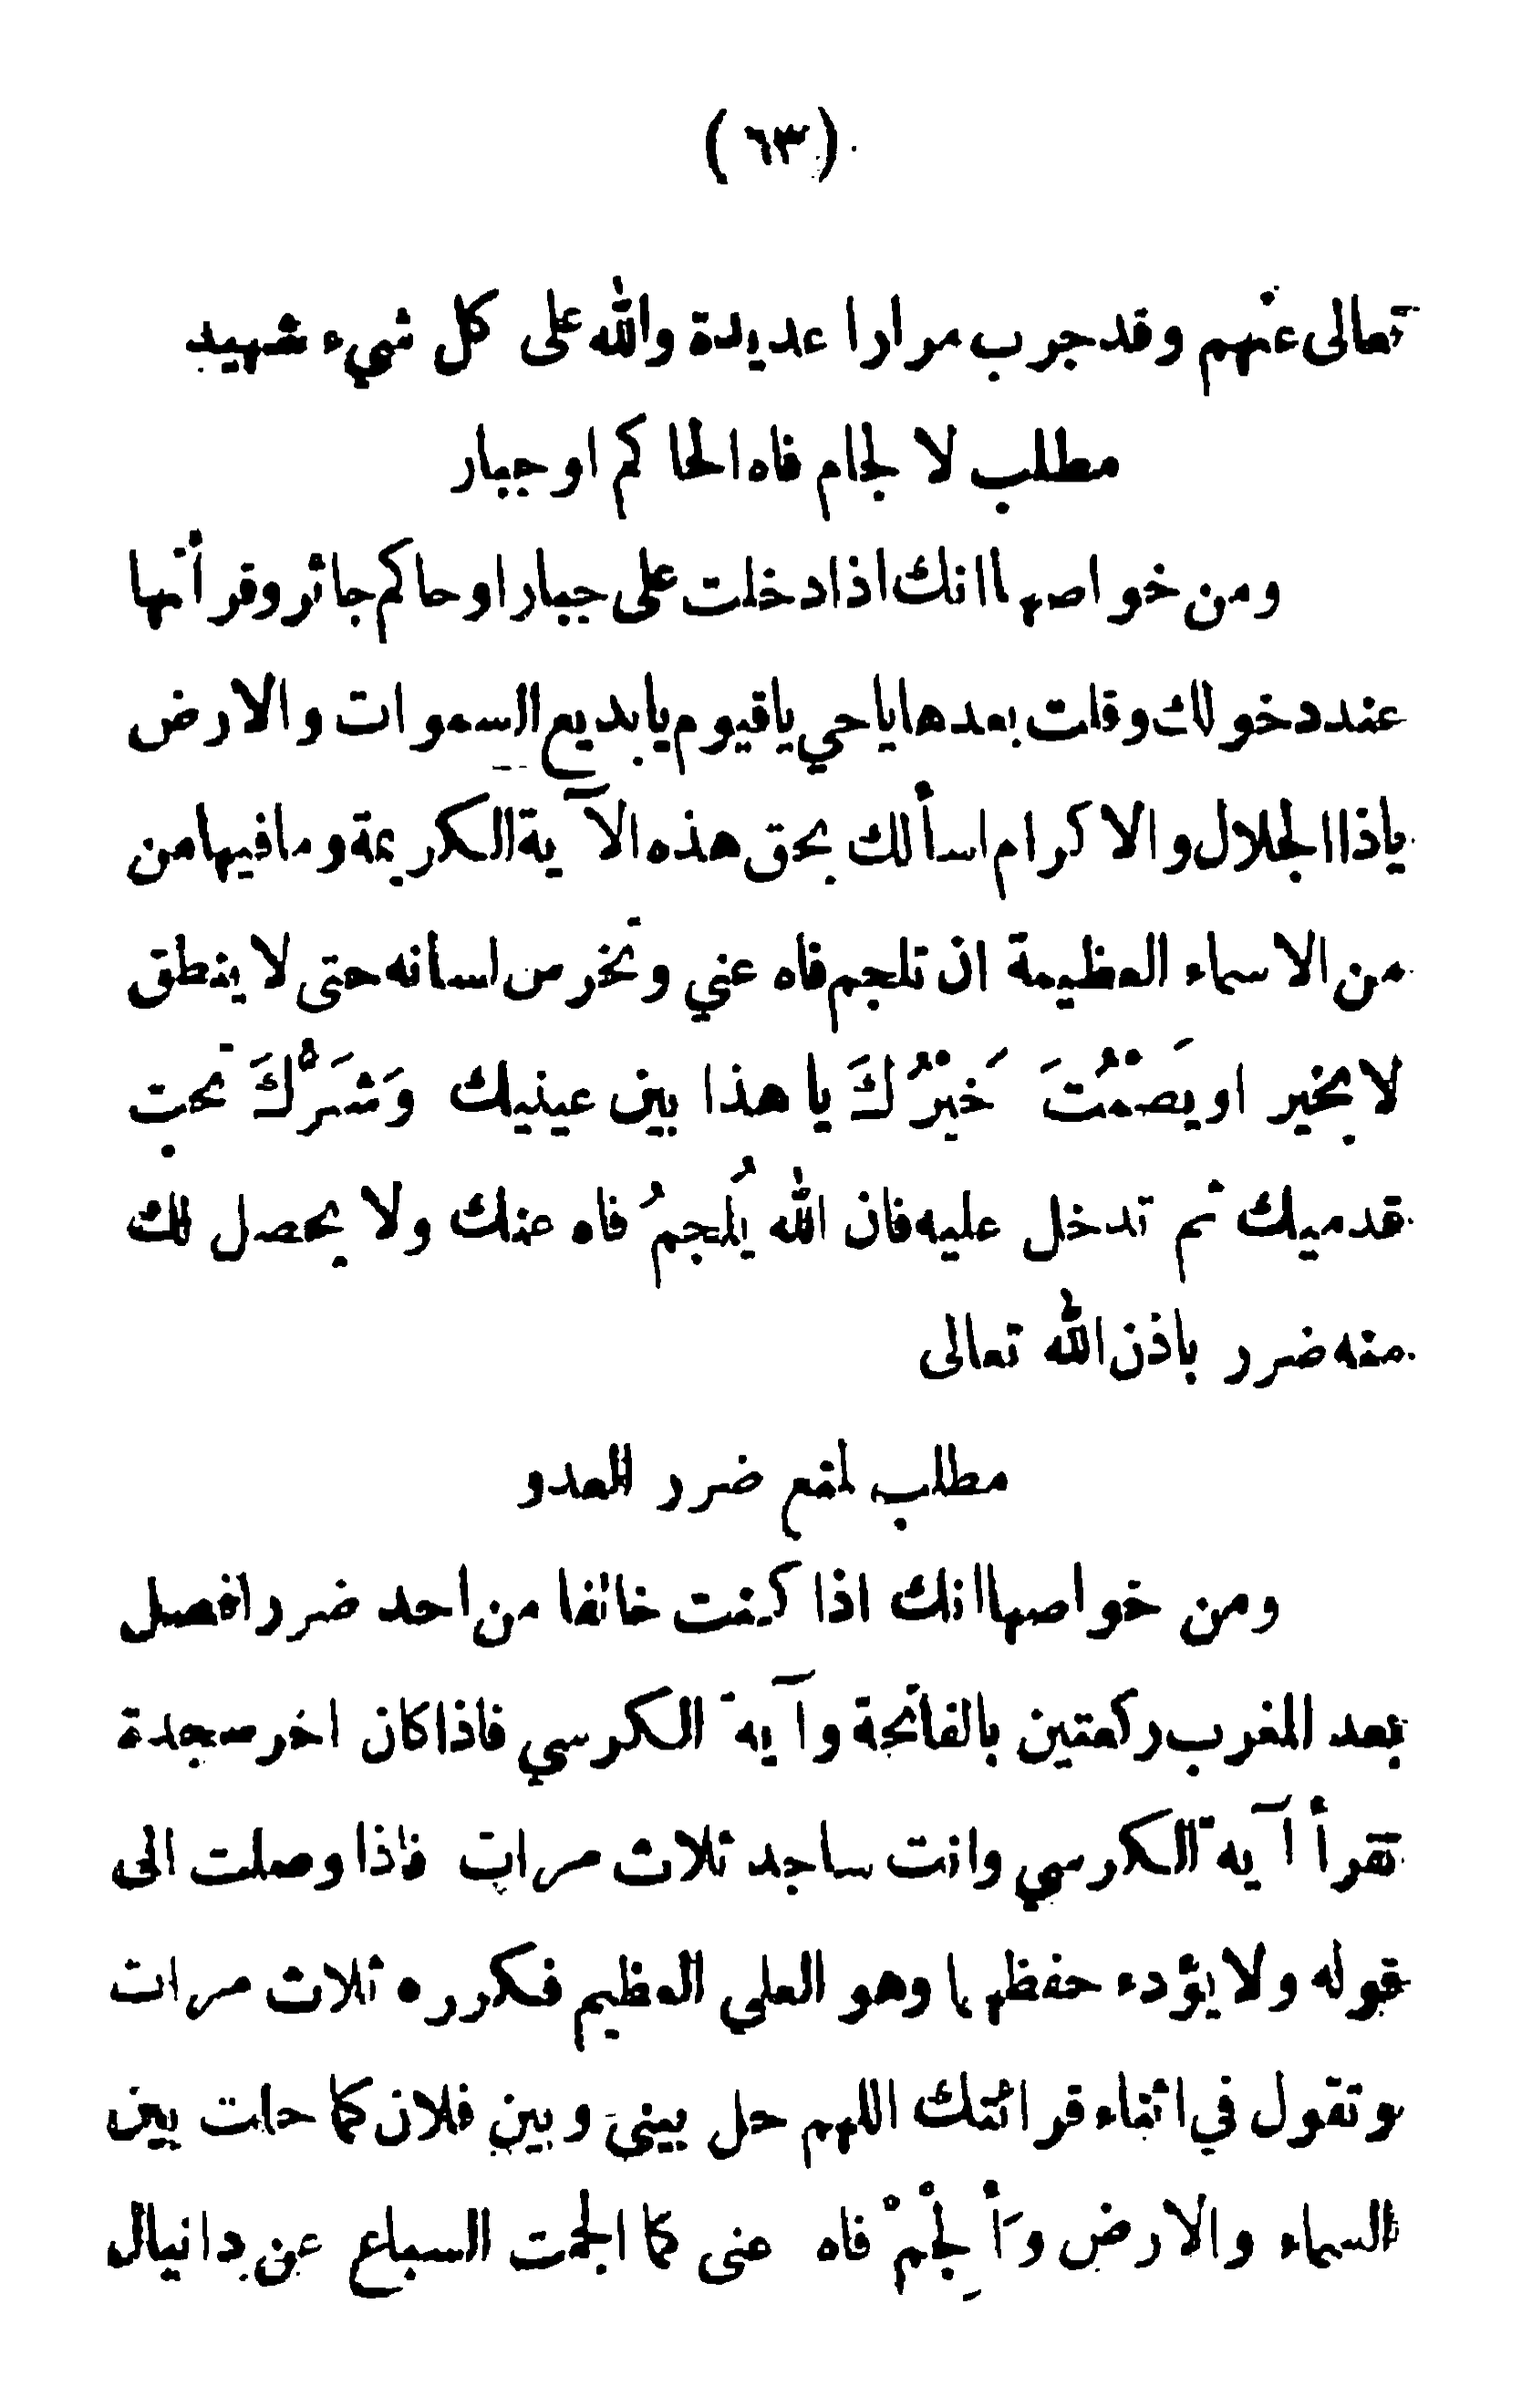 (٦٣)
تعالى عنهم وقد جرب مرارا عديدة والله على كل شيء شهيد
مطلب لا لجام فاه الحاكم او جبار
ومن خواصها انك اذا دخلت على جبار او حاكم جائر وقرأتها
عند دخولك وقلت بعدها ياحي ياقيوم يابديع السموات والارض
ياذا الجلال والاكرام اسألك بحق هذه الآية الكريمة وما فيها من
من الاسماء العظيمة ان تلجم فاه عني وتخرس لسانه حتى لا ينطق
لا بخير او يَصْمُتَ خَيْرُكَ يا هذا بين عينيك وَشَرُّكَ تحت
قدميك ثم تدخل عليه فان الله يُلجمُ فاه عنك ولا يحصل لك
منه ضرر باذن الله تعالى
مطلب لمنع ضرر العدو
ومن خواصها انك اذا كنت خائفا من احد ضررا فصل
بعد المغرب ركعتين بالفاتحة وآية الكرسي فاذا كان اخر سجدة
تقرأ آية الكرسي وانت ساجد ثلاث مرات فاذا وصلت الى
قوله ولا يؤده حفظهما وهو العلي العظيم فكرره ثلاث مرات
وتقول في اثناء قرائتك اللهم حل بيني وبين فلان كما حلت بين
السماء والارض وَأَلْجِمْ فاه عنى كما الجمت السباع عن دانيال